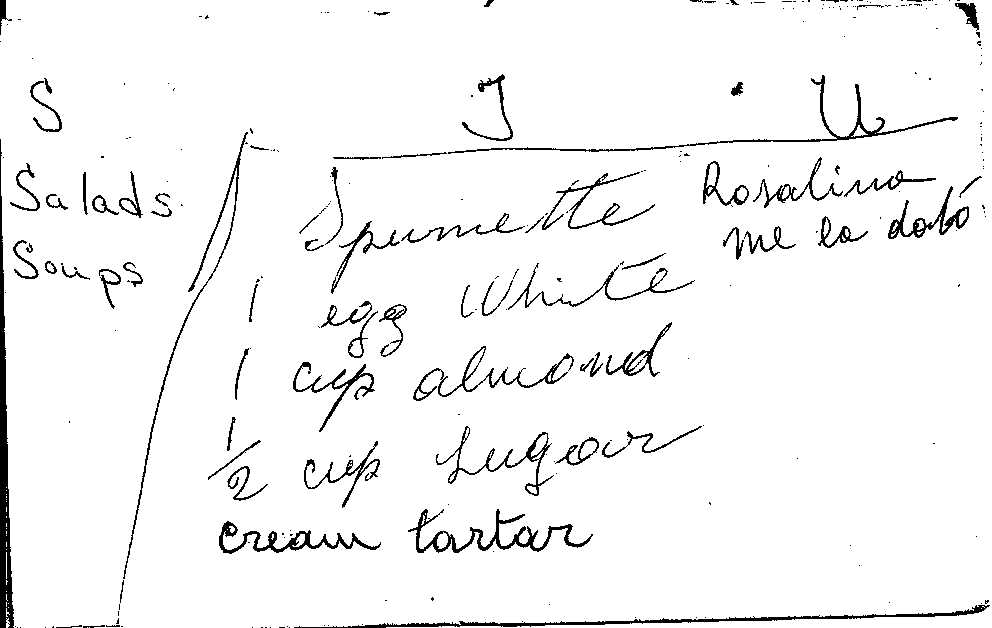 S J U
Salads
Soups
Spumette Rosalina
me la dató
1 egg White
1 cup almond
1/2 cup sugar
cream tartar